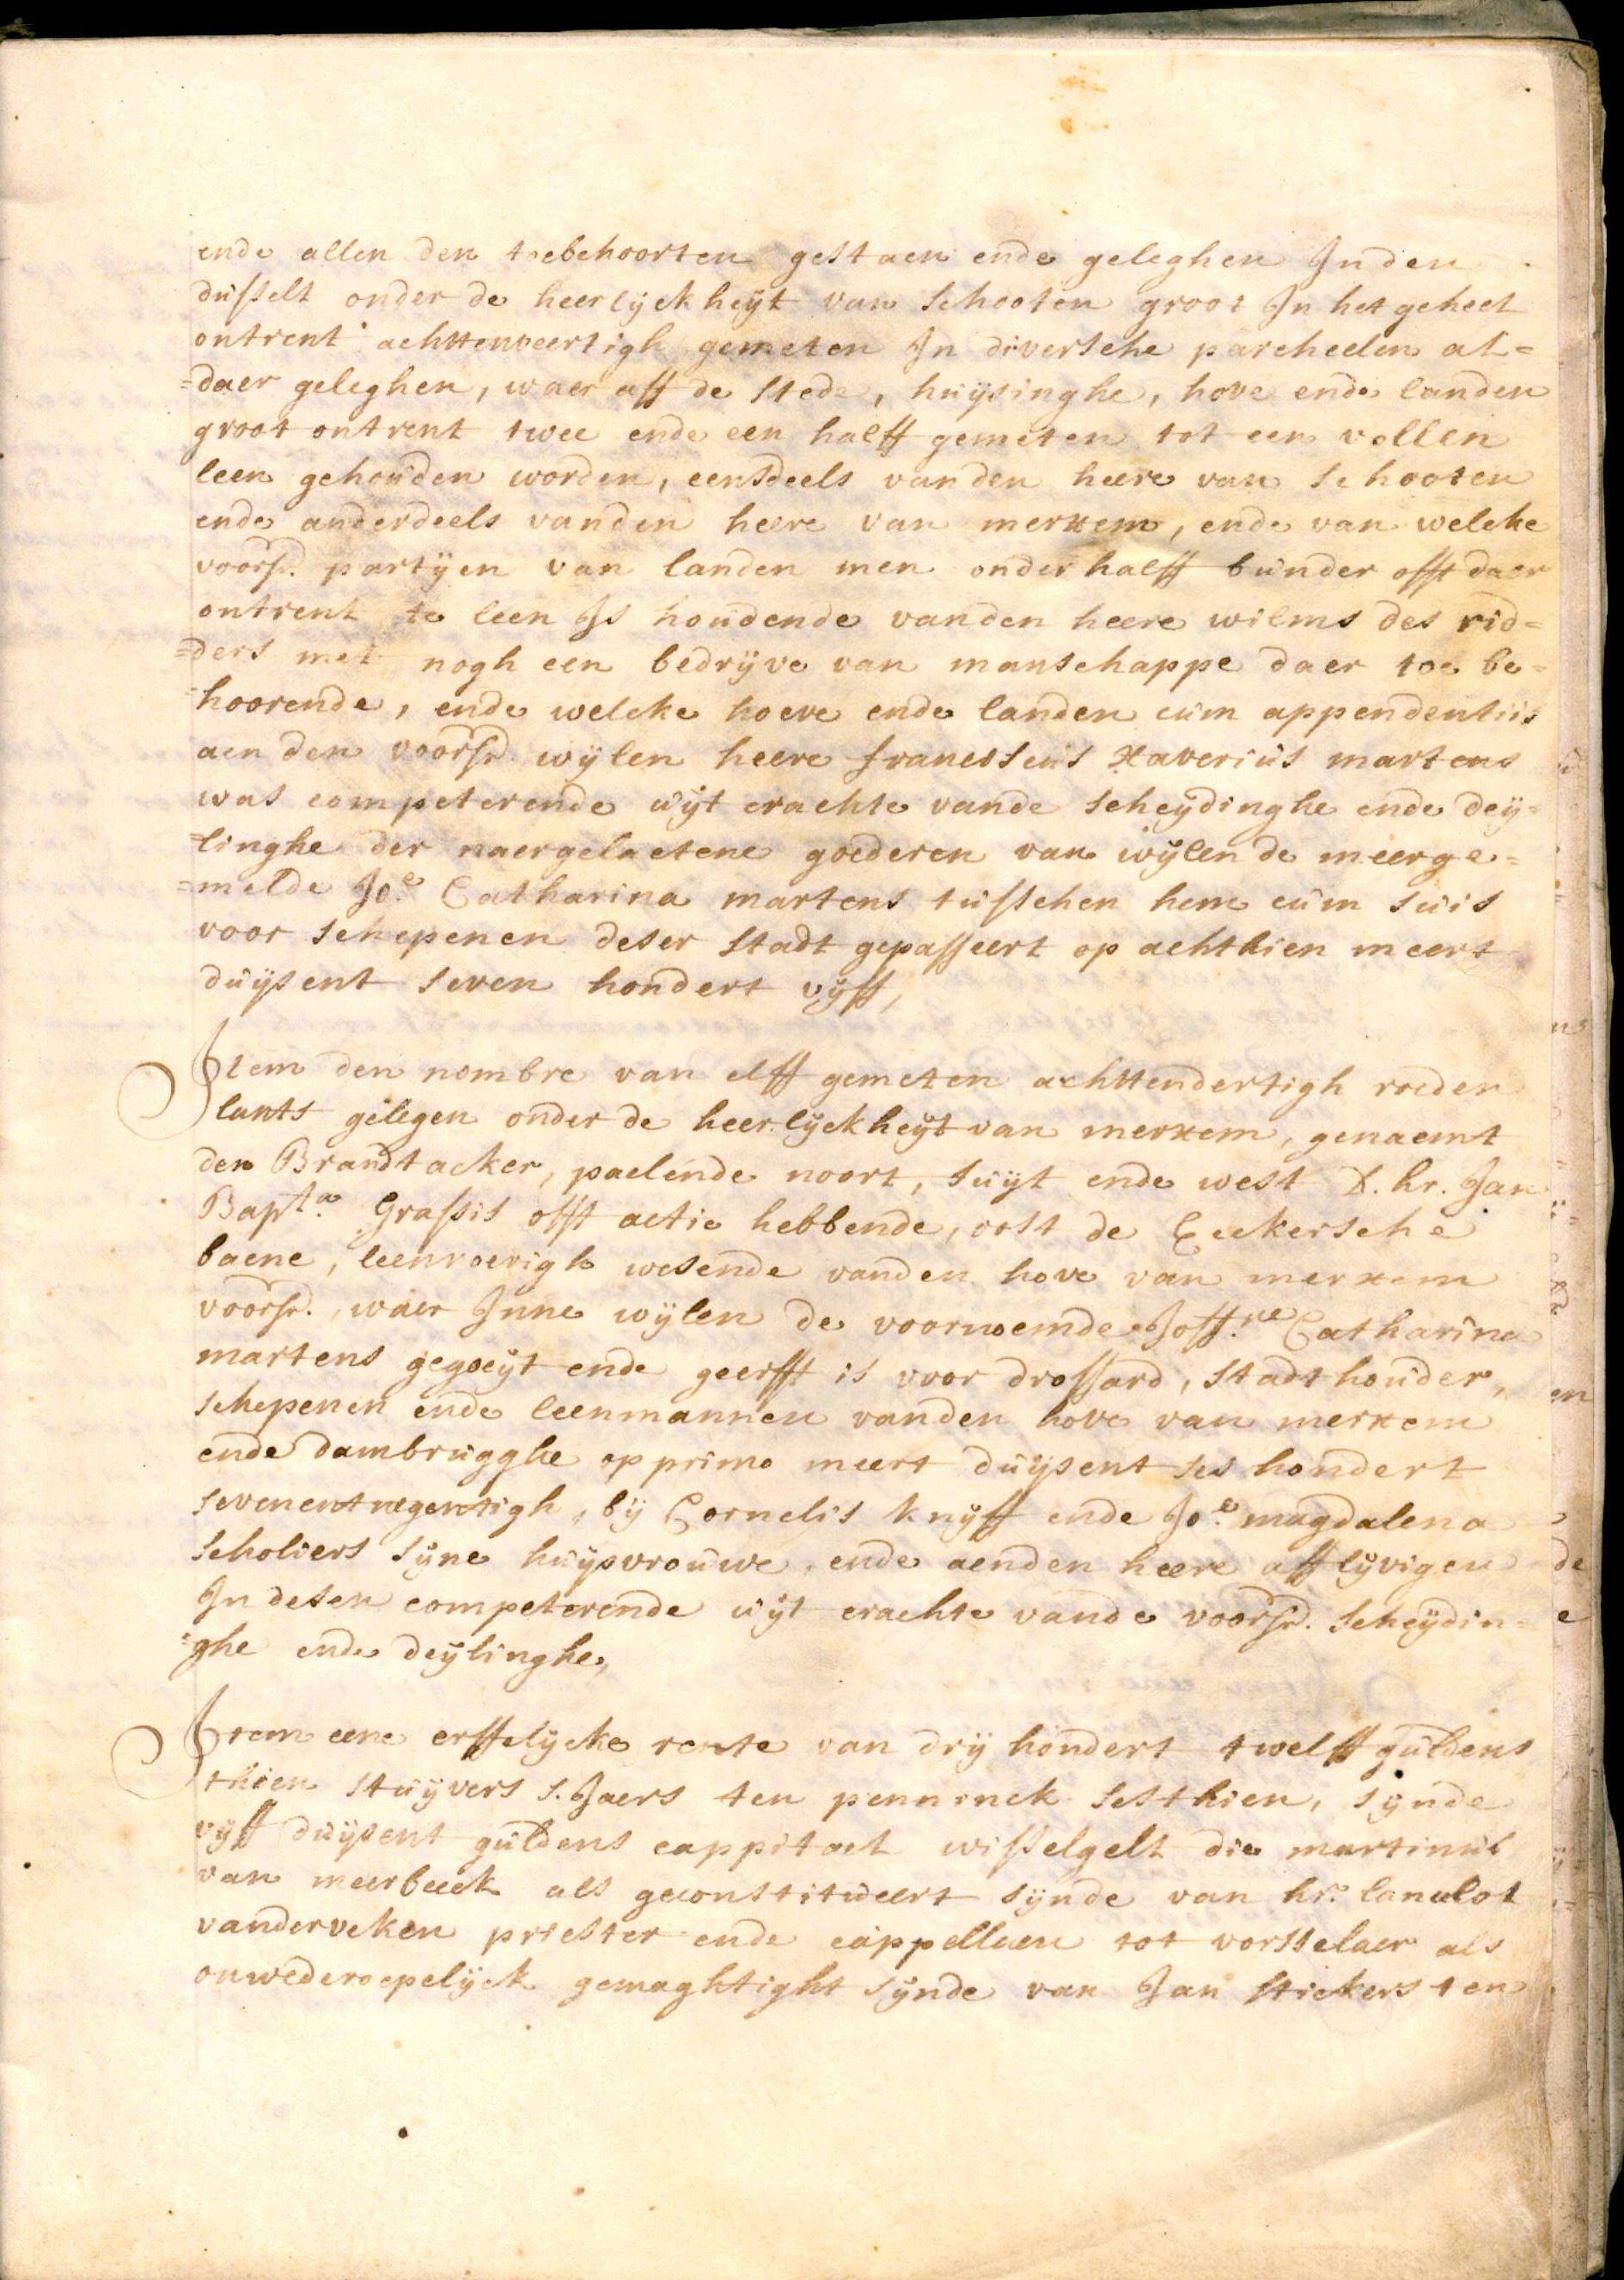 ende allen den toebehoorten gestaen ende geleghen Inden
dusselt onder de heerlyckheyt van Schooten groot In het geheel
ontrent achttenveertigh gemeten In diversche parcheelen al=
=daer geleghen, waer aff de Stede, huysinghe, hove ende landen
groot ontrent twee ende een halff gemeten tot een vollen
leen gehouden worden, eensdeels vanden heere van Schooten
ende anderdeels vanden heere van merxem, ende van welcke
voorsd. partyen van landen men onderhalff bunder offt daer
ontrent te leen Is houdende vanden heere wilms des rid=
=ders met nogh een bedryve van manschappe daer toe be=
=hoorende, ende welcke hoeve ende landen cum appendentiis
aen den voorsd. wylen heere franciscus Xaverius martens
was competerende uyt crachte vande Scheydinghe ende dey=
=linghe der naergelaetene goederen van wylen de meerge=
=melde Joe. Catharina martens tusschen hem cum Suis
voor Schepenen deser Stadt gepasseert op achthien meert
duysent Seven hondert vyff,
Item den nombre van elff gemeten achttendertigh roeden
lants gelegen onder de heerlyckheyt van merxem, genaemt
den Brandtacker, paelende noort, Suyt ende west d. hr. Jan
Bapta. Grassis offt actie hebbende, oost de Eeckersche
baene, leenroerigh wesende vanden hove van merxem
voorsd., waer Inne wylen de voornoemde Joff.we Catharina
martens gegoeyt ende geerfft is voor drossard, Stadthouder,
Schepenen ende leenmannen vanden hove van merxem
ende dambrugghe op primo meert duysent ses hondert
sevenentnegentigh, by Cornelis knyff ende Joe. magdalena
Scholiers Syne huysvrouwe, ende aenden heere afflyvigen
In desen competerende uyt crachte vande voorsd. Scheydin=
=ghe ende deylinghe,
Item eene erffelycke rente van dry hondert twelff guldens
thien Stuyvers S. Jaers ten penninck Sesthien, Synde
vyff duysent guldens cappitael wisselgelt die martinus
van meerbeeck als geconstitueert Synde van hr. lancelot
vanderveken priester ende cappellaen tot vorsselaer als
onwederoepelyck gemaghtight Synde van Jan Stickers ten